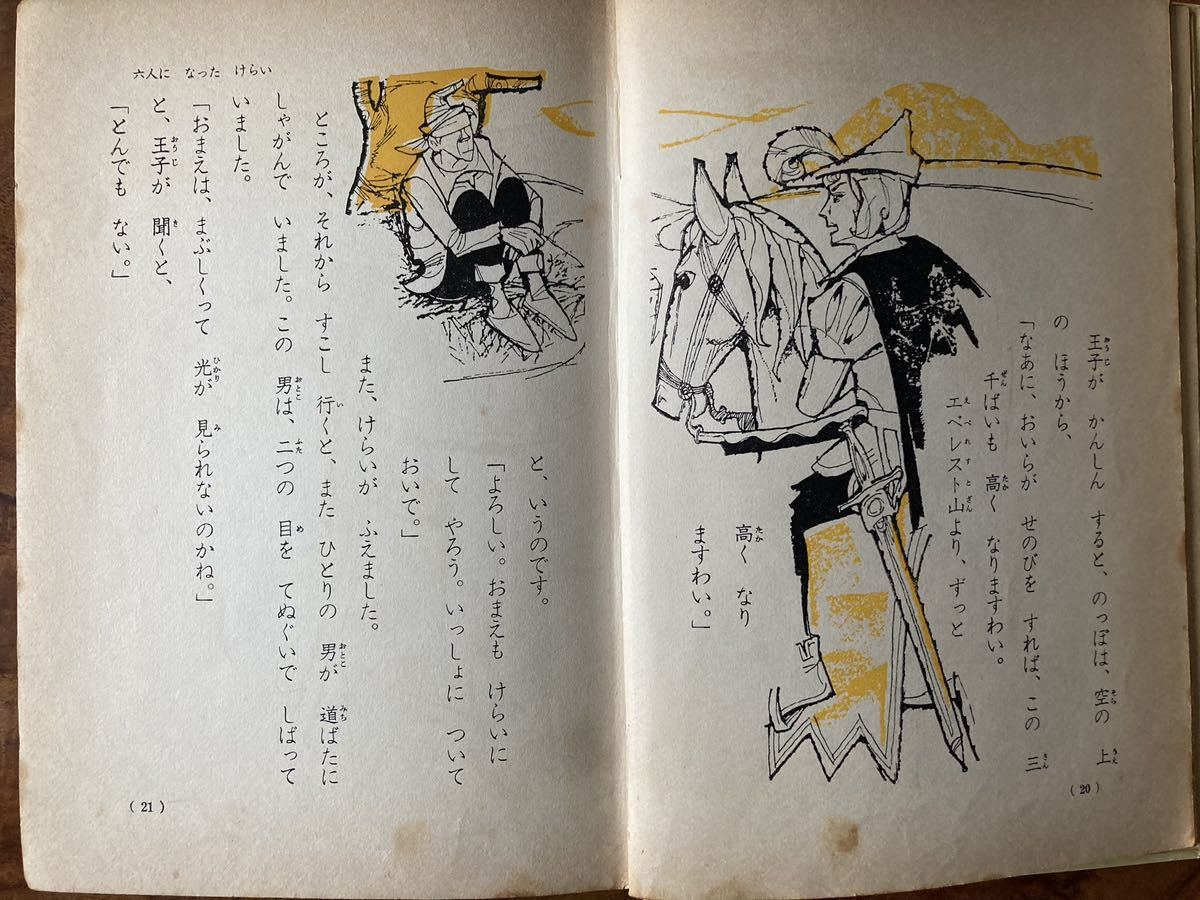 王子が　かんしん　すると、のっぽは、空の　上
の　ほうから、
「なあに、おいらが　せのびを　すれば、この　三
千ばいも　高く　なりますわい。
エベレスト山より、ずっと
高く　なり
ますわい。」
(20)
六人に　なった　けらい
と、いうのです。
「よろしい。おまえも　けらいに
して　やろう。いっしょに　ついて
おいで。」
また、けらいが　ふえました。
ところが、それから　すこし　行くと、また　ひとりの　男が　道ばたに
しゃがんで　いました。この　男は、二つの　目を　てぬぐいで　しばって
いました。
「おまえは、まぶしくって　光が　見られないのかね。」
と、王子が　聞くと、
「とんでも　ない。」
(21)